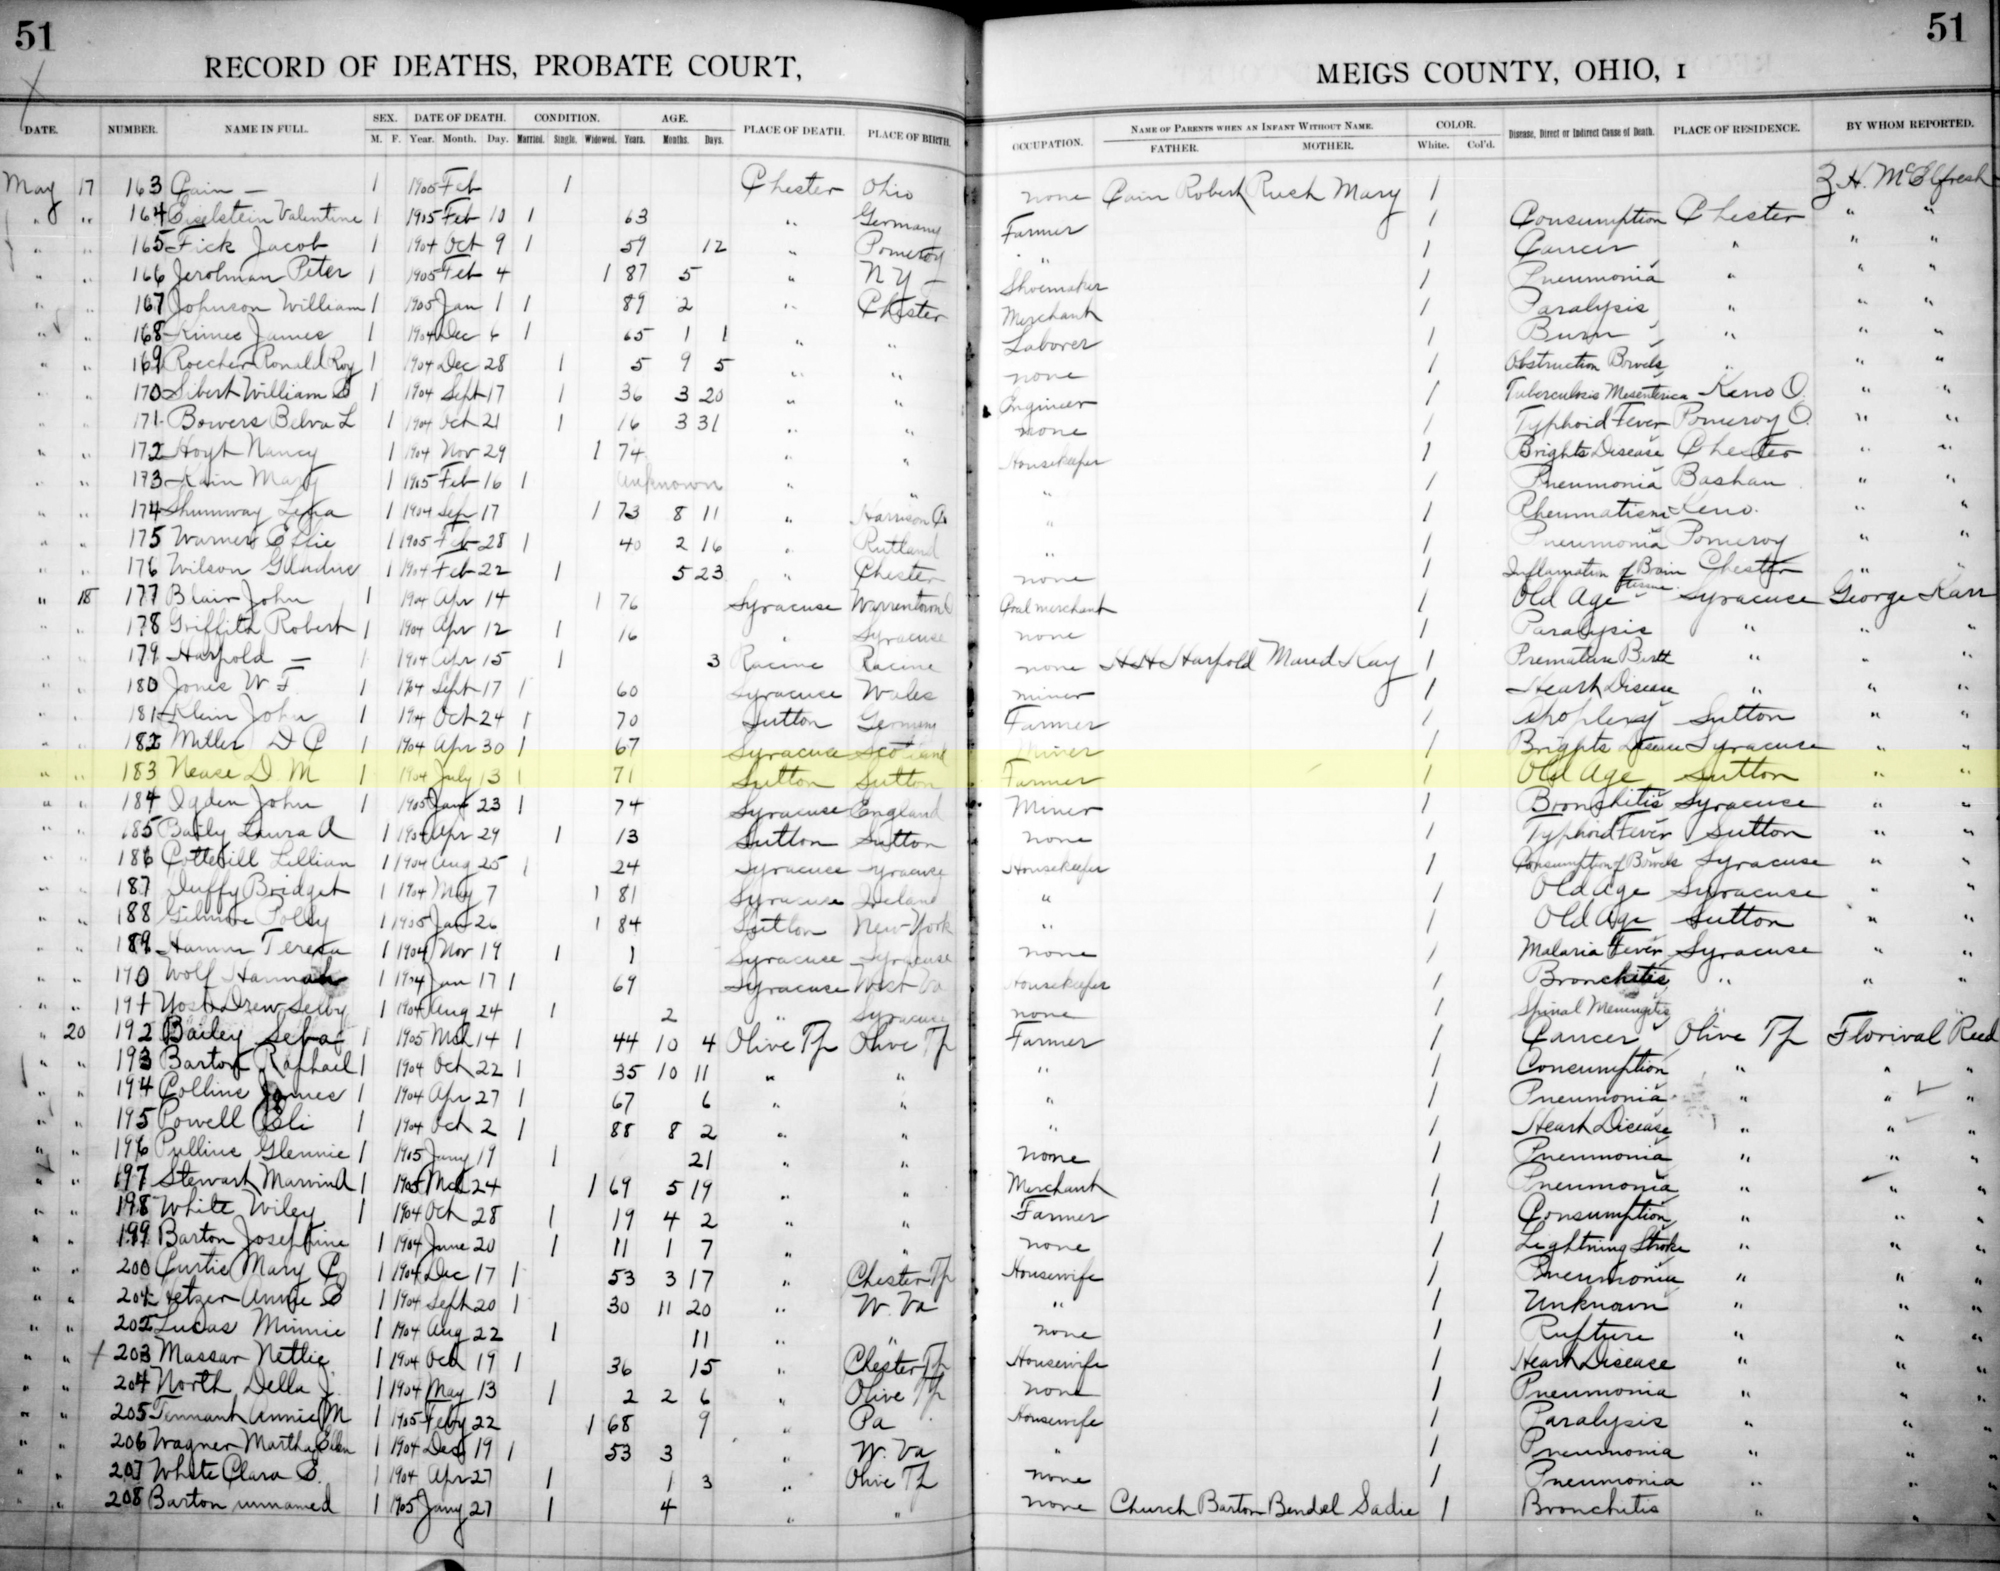 51 51
RECORD OF DEATHS, PROBATE COURT, MEIGS COUNTY, OHIO, 1
DATE. NUMBER. NAME IN FULL. SEX. DATE OF DEATH. CONDITION. AGE. PLACE OF DEATH. PLACE OF BIRTH. OCCUPATION. NAME OF PARENTS WHEN AN INFANT WITHOUT NAME. COLOR. Disease, Direct or Indirect Cause of Death. PLACE OF RESIDENCE. BY WHOM REPORTED.
M. F. Year. Month. Day. Married. Single. Widowed. Years. Months. Days. FATHER. MOTHER. White. Col'd.
May 17 163 Cain — 1 1905 Feb 1 Chester Ohio none Cain Robert Rush Mary 1 Z. H. McElfresh
" " 164 Eiselstein Valentine 1 1905 Feb 10 1 63 " Germany Farmer 1 Consumption Chester " "
" " 165 Fick Jacob 1 1904 Oct 9 1 59 12 " Pomeroy " 1 Cancer " " "
" " 166 Jerolman Peter 1 1905 Feb 4 1 87 5 " N Y — Shoemaker 1 Pneumonia " " "
" " 167 Johnson William 1 1905 Jan 1 1 89 2 " Chester Merchant 1 Paralysis " " "
" " 168 Kimes James 1 1904 Dec 6 1 65 1 1 " " Laborer 1 Burn " " "
" " 169 Roecher Ronald Roy 1 1904 Dec 28 1 5 9 5 " " none 1 Obstruction Bowels " " "
" " 170 Sibert William S 1 1904 Sept 17 1 36 3 20 " " Engineer 1 Tuberculosis Mesenterica Keno O. " "
" " 171 Bowers Belva L 1 1904 Oct 21 1 16 3 31 " " none 1 Typhoid Fever Pomeroy O. " "
" " 172 Hoyt Nancy 1 1904 Nov 29 1 74 " " Housekeeper 1 Brights Disease Chester " "
" " 173 Kain Mary 1 1905 Feb 16 1 unknown " " " 1 Pneumonia Bashan " "
" " 174 Shumway Lena 1 1904 Sep 17 1 73 8 11 " Harrison Co " 1 Rheumatism Keno. " "
" " 175 Warner Effie 1 1905 Feb 28 1 40 2 16 " Rutland " 1 Pneumonia Pomeroy " "
" " 176 Wilson 1 1904 Feb 22 1 5 23 " Chester none 1 Inflamation of Brain Chester " "
" 18 177 Blair John 1 1904 Apr 14 1 76 Syracuse Warrentown O Coal merchant 1 Old Age Syracuse George Karr
" " 178 Griffith Robert 1 1904 Apr 12 1 16 " Syracuse none 1 Paralysis " " "
" " 179 Harpold — 1 1904 Apr 15 1 3 Racine Racine none H H Harpold Maud Kay 1 Premature Birth " " "
" " 180 Jones W F. 1 1904 Sept 17 1 60 Syracuse Wales miner 1 Heart Disease " " "
" " 181 Klein John 1 1904 Oct 24 1 70 Sutton Germany Farmer 1 Apoplexy Sutton " "
" " 182 Miller D C 1 1904 Apr 30 1 67 Syracuse Scotland Miner 1 Brights Disease Syracuse " "
" " 183 Nease D M 1 1904 July 13 1 71 Sutton Sutton Farmer 1 Old Age Sutton " "
" " 184 Ogden John 1 1905 Jan 23 1 74 Syracuse England Miner 1 Bronchitis Syracuse " "
" " 185 Baily Laura A 1 1904 Apr 29 1 13 Sutton Sutton none 1 Typhoid Fever Sutton " "
" " 186 Cotterill Lillian 1 1904 Aug 25 1 24 Syracuse Syracuse Housekeeper 1 Consumption of Bowels Syracuse " "
" " 187 Duffy Bridget 1 1904 May 7 1 81 Syracuse Ireland " 1 Old Age Syracuse " "
" " 188 Gilmore Polly 1 1905 Jan 26 1 84 Sutton New-York " 1 Old Age Sutton " "
" " 189 Hamm Teresa 1 1904 Nov 19 1 1 Syracuse Syracuse none 1 Malaria Fever Syracuse " "
" " 190 Wolf Hannah 1 1904 Jan 17 1 69 Syracuse West Va Housekeeper 1 Bronchitis " " "
" " 191 Yost Drew Selby 1 1904 Aug 24 1 2 " Syracuse none 1 Spinal Meningitis " " "
" 20 192 Bailey Seba 1 1905 Mch 14 1 44 10 4 Olive Tp Olive Tp Farmer 1 Cancer Olive Tp Florival Reed
" " 193 Barton Raphael 1 1904 Oct 22 1 35 10 11 " " " 1 Consumption " " "
" " 194 Collins James 1 1904 Apr 27 1 67 6 " " " 1 Pneumonia " " "
" " 195 Powell Eli 1 1904 Oct 2 1 88 8 2 " " " 1 Heart Disease " " "
" " 196 Pullins Glennie 1 1905 Jany 19 1 21 " " none 1 Pneumonia " " "
" " 197 Stewart Marvin A 1 1905 Mch 24 1 69 5 19 " " Merchant 1 Pneumonia " " "
" " 198 White Wiley 1 1904 Oct 28 1 19 4 2 " " Farmer 1 Consumption " " "
" " 199 Barton Josephine 1 1904 June 20 1 11 1 7 " " none 1 Lightning Stroke " " "
" " 200 Curtis Mary C 1 1904 Dec 17 1 53 3 17 " Chester Tp Housewife 1 Pneumonia " " "
" " 201 Hetzer Annie S 1 1904 Sept 20 1 30 11 20 " W. Va " 1 Unknown " " "
" " 202 Lucas Minnie 1 1904 Aug 22 1 11 " " none 1 Rupture " " "
" " 203 Massar Nettie 1 1904 Oct 19 1 36 15 " Chester Tp Housewife 1 Heart Disease " " "
" " 204 North Della J. 1 1904 May 13 1 2 2 6 " Olive Tp none 1 Pneumonia " " "
" " 205 Tennant Annie M 1 1905 Feby 22 1 68 9 " Pa Housewife 1 Paralysis " " "
" " 206 Wagner Martha Ellen 1 1904 Dec 19 1 53 3 " W. Va " 1 Pneumonia " " "
" " 207 White Clara S. 1 1904 Apr 27 1 1 3 " Olive Tp none 1 Pneumonia " " "
" " 208 Barton unnamed 1 1905 Jany 27 1 4 " " none Church Barton Bendel Sadie 1 Bronchitis " " "